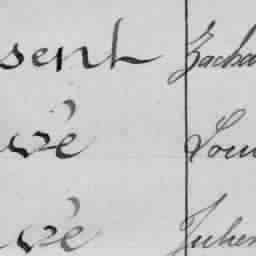 sent Zacha
vé Loui
vé Julien